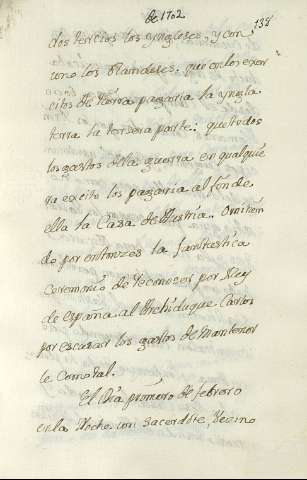 de 1702
138
dos tercios los yngleses, y con
uno los Olandeses: que en los exer
citos de tierra pagaria la yngla
terra la tersera parte: que todos
los gastos de la guerra en qualquie
ra excito los pagaria al fin de
ella la Casa de Austria. Omitien
do por entonzes la fantestica
ceremonia de reconocer por Rey
de españa al Archiduque Carlos
por escasar los gastos de mantener
le como tal.
El Dia primero de febrero
en la Noche, un sacerdote, Vecino